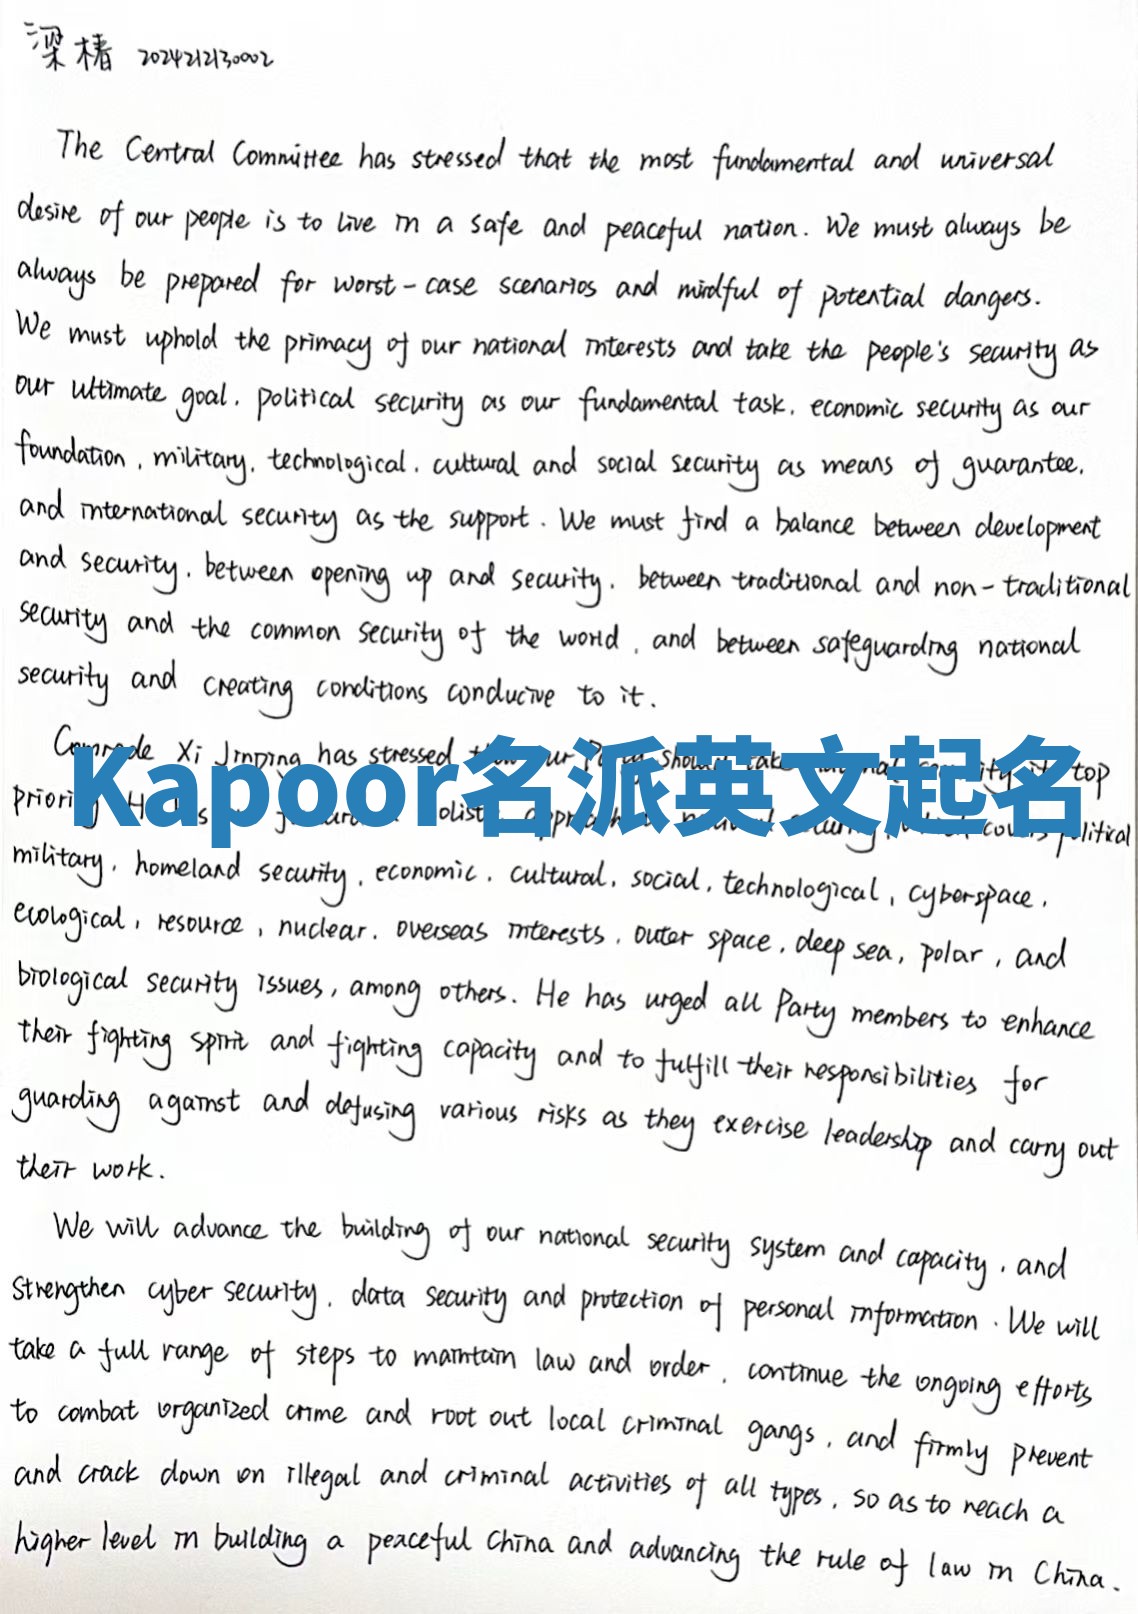 梁椿 2024212130002
The Central Committee has stressed that the most fundamental and universal
desire of our people is to live in a safe and peaceful nation. We must always be
always be prepared for worst-case scenarios and mindful of potential dangers.
We must uphold the primacy of our national interests and take the people's security as
our ultimate goal, political security as our fundamental task, economic security as our
foundation, military, technological, cultural and social security as means of guarantee,
and international security as the support. We must find a balance between development
and security, between opening up and security, between traditional and non-traditional
security and the common security of the world, and between safeguarding national
security and creating conditions conducive to it.
Comrade Xi Jinping has stressed our Party should take top
Kapoor名派英文起名
priority covers political
military, homeland security, economic, cultural, social, technological, cyberspace,
ecological, resource, nuclear, overseas interests, outer space, deep sea, polar, and
biological security issues, among others. He has urged all Party members to enhance
their fighting spirit and fighting capacity and to fulfill their responsibilities for
guarding against and defusing various risks as they exercise leadership and carry out
their work.
We will advance the building of our national security system and capacity, and
strengthen cyber security, data security and protection of personal information. We will
take a full range of steps to maintain law and order, continue the ongoing efforts
to combat organized crime and root out local criminal gangs, and firmly prevent
and crack down on illegal and criminal activities of all types, so as to reach a
higher level in building a peaceful China and advancing the rule of law in China.